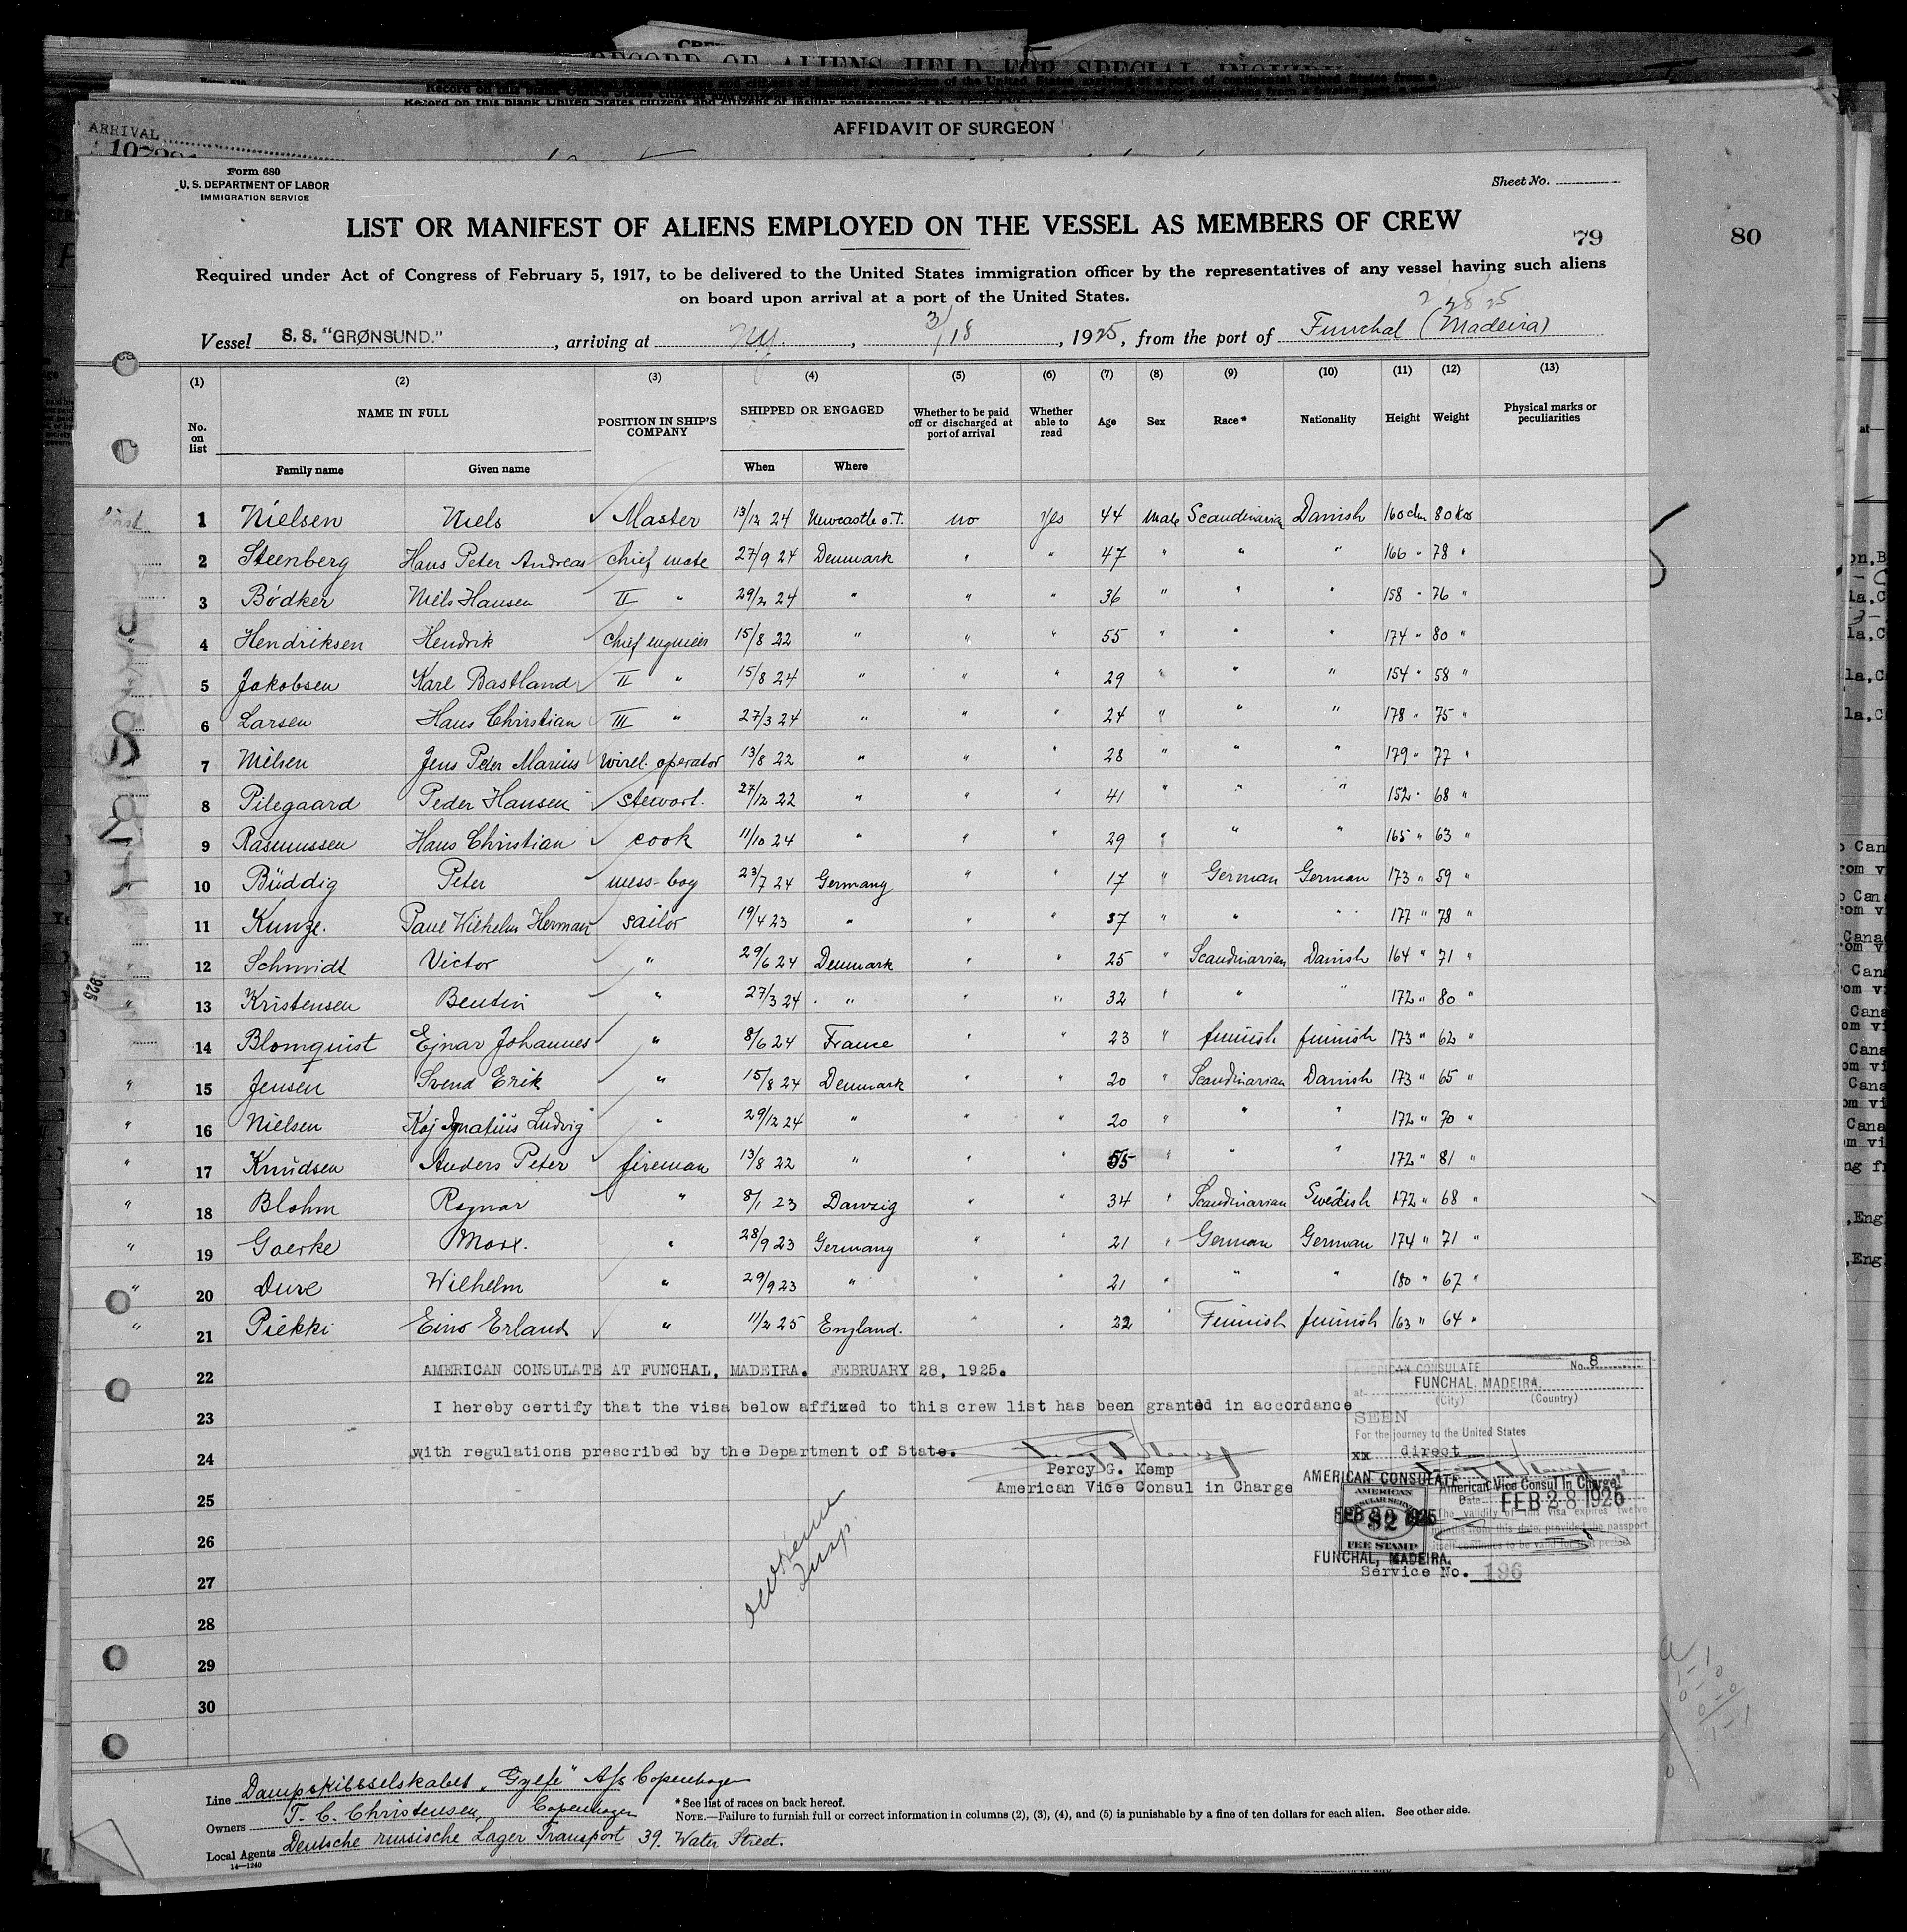 RECORD OF ALIENS HELD FOR SPECIAL INQUIRY
AFFIDAVIT OF SURGEON
ARRIVAL
Form 680
U. S. DEPARTMENT OF LABOR
IMMIGRATION SERVICE
Sheet No.
LIST OR MANIFEST OF ALIENS EMPLOYED ON THE VESSEL AS MEMBERS OF CREW
79
80
Required under Act of Congress of February 5, 1917, to be delivered to the United States immigration officer by the representatives of any vessel having such aliens
on board upon arrival at a port of the United States.
2 28 25
Vessel S. S. "GRØNSUND." , arriving at NY. , 3/18 , 1925, from the port of Funchal (Madeira)
(1) (2) (3) (4) (5) (6) (7) (8) (9) (10) (11) (12) (13)
No. on list NAME IN FULL POSITION IN SHIP'S COMPANY SHIPPED OR ENGAGED Whether to be paid off or discharged at port of arrival Whether able to read Age Sex Race* Nationality Height Weight Physical marks or peculiarities
Family name Given name When Where
first 1 Nielsen Niels Master 13/12 24 Newcastle o.T. no Yes 44 Male Scandinavian Danish 160 cm 80 Kos
2 Steenberg Hans Peter Andreas chief mate 27/9 24 Denmark " " 47 " " " 166 " 78 "
3 Bödker Niels Hansen II " 29/2 24 " " " 36 " " " 158 " 76 "
4 Hendriksen Hendrik chief engineer 15/8 22 " " " 55 " " " 174 " 80 "
5 Jakobsen Karl Bastland II " 15/8 24 " " " 29 " " " 154 " 58 "
6 Larsen Hans Christian III " 27/3 24 " " " 24 " " " 178 " 75 "
7 Nielsen Jens Peder Marius wirel. operator 13/8 22 " " " 28 " " " 179 " 77 "
8 Pilegaard Peder Hansen stewart. 27/12 22 " " " 41 " " " 152 " 68 "
9 Rasmussen Hans Christian cook 11/10 24 " " " 29 " " " 165 " 63 "
10 Büddig Peter mess-boy 23/7 24 Germany " " 17 " German German 173 " 59 "
11 Kunze. Paul Wilhelm Herman sailor 19/4 23 " " " 37 " " " 177 " 78 "
12 Schmidt Victor " 29/6 24 Denmark " " 25 " Scandinavian Danish 164 " 71 "
13 Kristensen Bentin " 27/3 24 " " " 32 " " " 172 " 80 "
14 Blomquist Ejnar Johannes " 8/6 24 France " " 23 " finnish finnish 173 " 62 "
" 15 Jensen Svend Erik " 15/8 24 Denmark " " 20 " Scandinavian Danish 173 " 65 "
" 16 Nielsen Kaj Ignatius Ludvig " 29/12 24 " " " 20 " " " 172 " 70 "
" 17 Knudsen Anders Peter fireman 13/8 22 " " " 55 " " " 172 " 81 "
" 18 Blohm Ragnar " 8/1 23 Danzig " " 34 " Scandinavian Swedish 172 " 68 "
" 19 Goerke Max. " 28/9 23 Germany " " 21 " German German 174 " 71 "
" 20 Duve Wilhelm " 29/9 23 " " " 21 " " " 180 " 67 "
" 21 Piekki Eino Erland " 11/2 25 England. " " 22 " Finnish finnish 163 " 64 "
22 AMERICAN CONSULATE AT FUNCHAL, MADEIRA. FEBRUARY 28, 1925.
23 I hereby certify that the visa below affixed to this crew list has been granted in accordance
24 with regulations prescribed by the Department of State.
Percy G. Kemp
American Vice Consul in Charge
25
26
27
28
29
30
AMERICAN CONSULATE No. 8
at FUNCHAL, MADEIRA.
(City) (Country)
SEEN
For the journey to the United States
xx direct
AMERICAN CONSULATE
American Vice Consul In Charge.
Date FEB 28 1925
The validity of this visa expires twelve
months from this date, provided the passport
itself continues to be valid for that period
AMERICAN CONSULAR SERVICE
$2
FEE STAMP
FUNCHAL, MADEIRA.
Service No. 196
Insp.
Line Dampskibsselskabet "Gylfe" A/s Copenhagen
Owners T. C. Christensen, Copenhagen
Local Agents Deutsche russische Lager Transport 39. Water Street.
14—1240
* See list of races on back hereof.
NOTE.—Failure to furnish full or correct information in columns (2), (3), (4), and (5) is punishable by a fine of ten dollars for each alien. See other side.